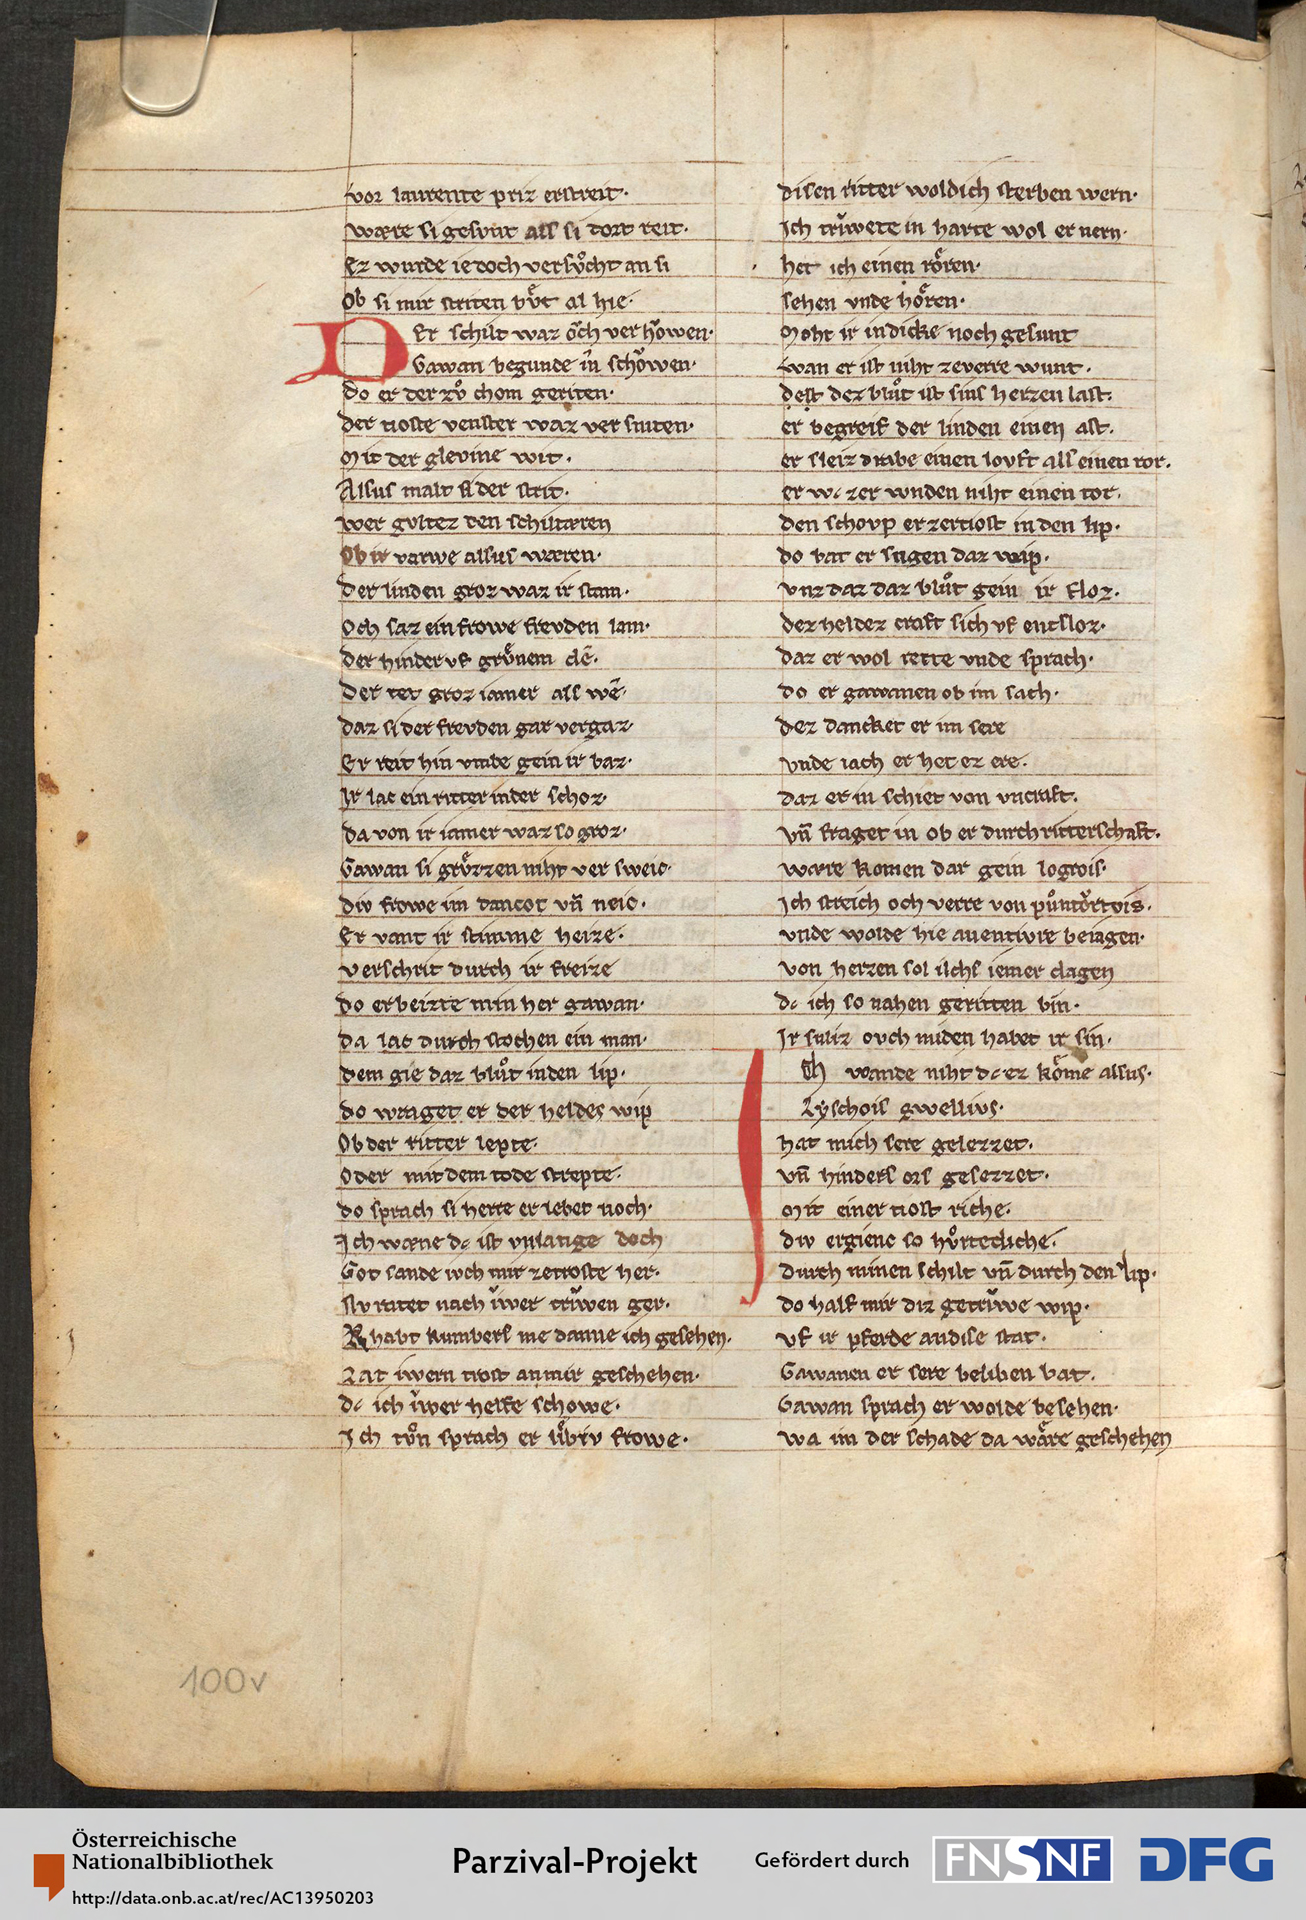 vor laurente priz erstreit·
wære si gesunt als si tort reit·
Ez wurde iedoch versvͦcht an si
Ob si mir striten bvͤt al hie·
Der schilt waz oͮch verhoͮwen·
Gawan begunde in schoͮwen·
do er der zvͦ chom geriten·
der tioste venster waz versniten·
Mit der glevine wit·
Alsus malt si der strit·
wer gvltez den schiltæren
Ob ir varwe alsus wæren·
der linden groz waz ir stam·
Och saz ein frowe frevden lam·
der hinder vf grvͤnem cle·
der tet groz iamer als we·
daz si der frevden gar vergaz·
Er reit hin vmbe gein ir baz·
Ir lac ein ritter inder schoz·
da von ir iamer waz so groz·
Gawan si grvͤzzen niht versweic·
div frowe im dancot vn̄ neic·
Er vant ir stimme heize·
verschrit durch ir freize
do erbeizte min her gawan·
da lac durch stochen ein man·
dem gie daz blvͦt inden lip·
do vraget er der heldes wip
Ob der ritter lepte·
Oder mit dem tode strepte·
do sprach si herre er lebet noch·
Ich wæne dc ist vnlange doch
Got sande ivch mir ze troste her·
Nv ratet nach iͮwer triͮwen ger·
Ir habt kumbers me danne ich gesehen·
Lat iwern trost an mir geschehen·
dc ich iͮwer helfe schowe·
Ich tvͦn sprach er iͮbiv frowe·
disen ritter woldich sterben wern·
Ich triͮwete in harte wol ernern·
het ich einen roͤren·
sehen vnde hoͤren·
Moht ir in dicke noch gesunt
wan er ist niht ze verre wunt·
dest dez blvͦt ist sins herzen last·
er begreif der linden einen ast·
er sleiz drabe einen louft als einen ror·
er wc zer wnden niht einen tor·
den schoup er zer tiost in den lip·
do bat er sugen daz wip·
vnz daz daz blvͦt gein ir floz·
dez heldez craft sich vf entsloz·
daz er wol rette vnde sprach·
do er gawanen ob im sach·
dez dancket er im sere
vnde iach er het ez ere·
daz er in schiet von vncraft·
vn̄ fraget in ob er durch ritterschaft·
wære komen dar gein logrois·
Ich streich och verre von pvͦntoͤrtois·
vnde wolde hie auentivre beiagen·
von herzen sol ichs iemer clagen
dc ich so nahen geritten bin·
Ir sulz ouch miden habet ir sin·
Ich wande niht dc ez koͤme alsus·
Lẏschois gwellivs·
hat mich sere geletzet·
vn̄ hinders ors gesezzet·
Mit einer tiost riche·
div ergienc so hvͦrtecliche·
durch minen schilt vn̄ durch den lip·
do half mir diz getriͮwe wip·
vf ir pferde an dise stat·
Gawanen er sere beliben bat·
Gawan sprach er wolde besehen·
wa im der schade da wære geschehen
100v
Österreichische
Nationalbibliothek
http://data.onb.ac.at/rec/AC13950203
Parzival-Projekt
Gefördert durch
FNSNF
DFG